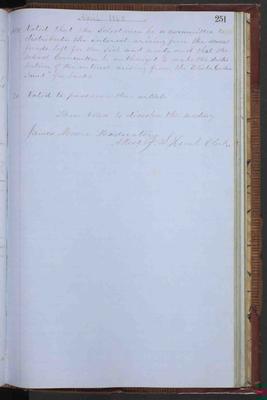 251
Voted that the Selectmen be a committee to
distribute the interest arising from the several
funds left for the sick and and that the
School Committee be authorized to make the distri
bution of the interest arising from the
Fund for books
Voted to pass over this article
Then voted to dissolve the meeting
James Moderator
Attest Clerk